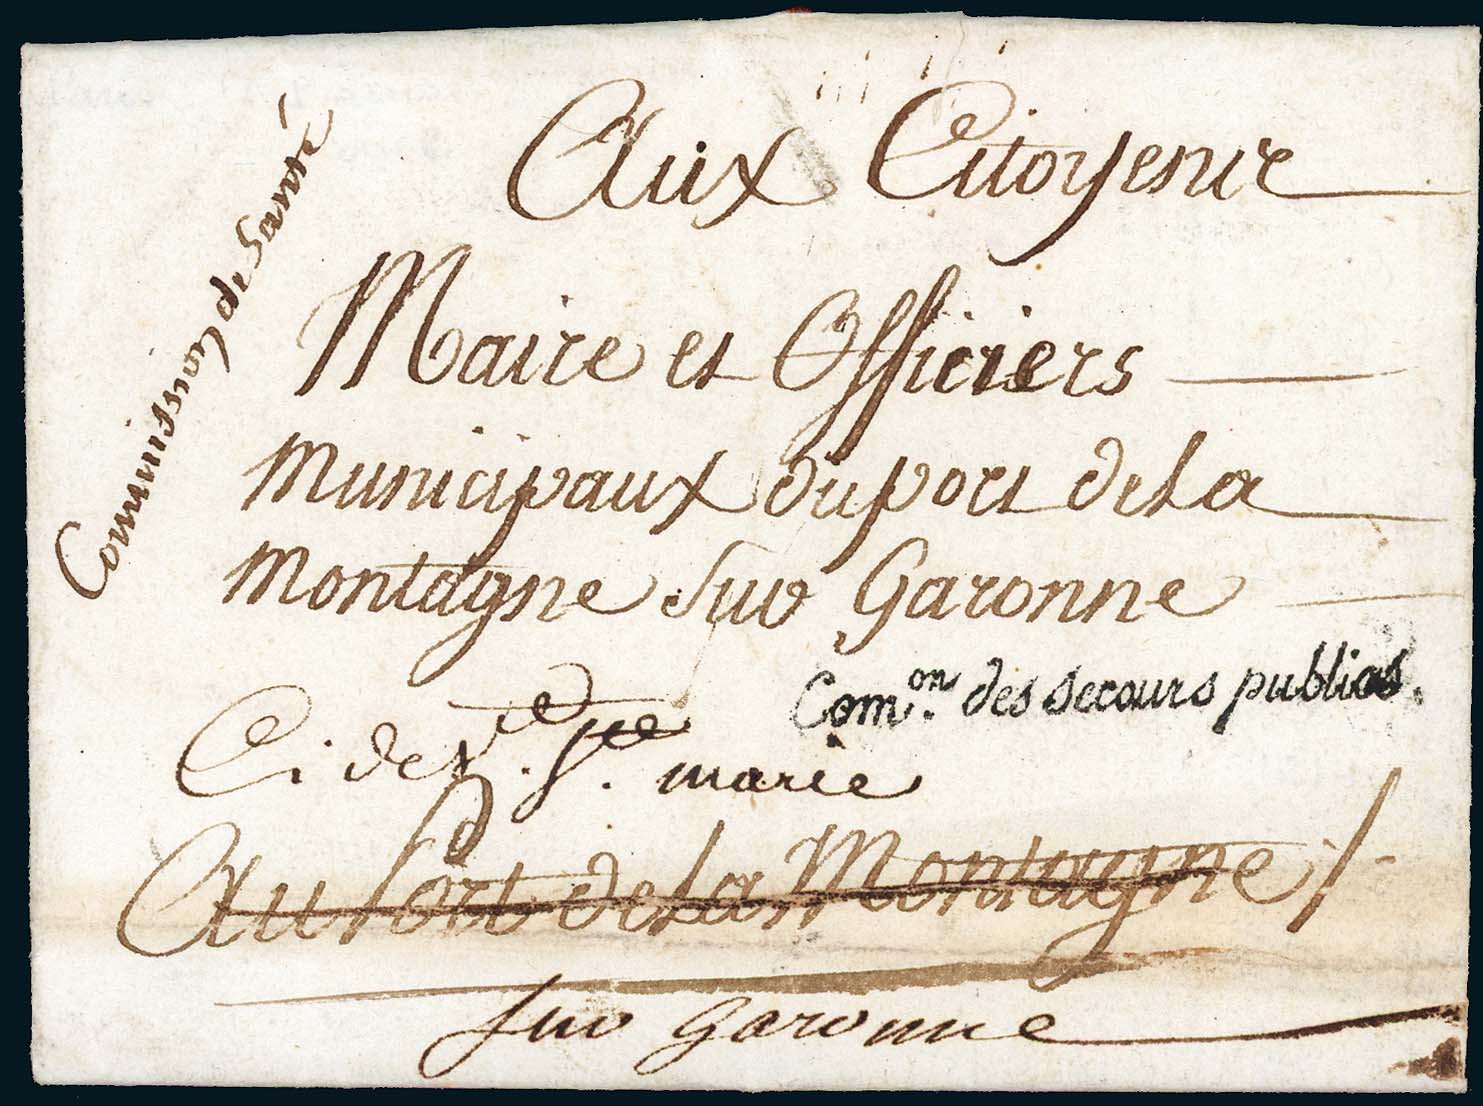 Commission de Santé
Aux Citoyens
Maire et Officiers
Municipaux du port de La
Montagne sur Garonne
Com.on des secours publics.
Ci dev. Ste. marie
Au Port de La Montagne /-
sur Garonne